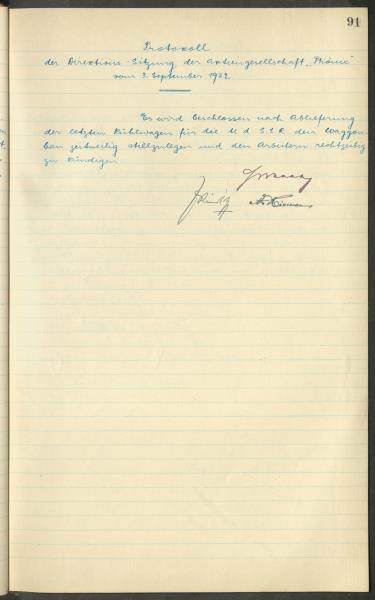 91
Protokoll
der Direktions-Sitzung der Aktiengesellschaft „Phönix"
vom 3. September 1932
Es wird beschlossen nach Ablieferung
der letzten Kühlwagen für die U d S.S.R. den Waggon-
bau zeitweilig stillzulegen und den Arbeitern rechtzeitig
zu kündigen